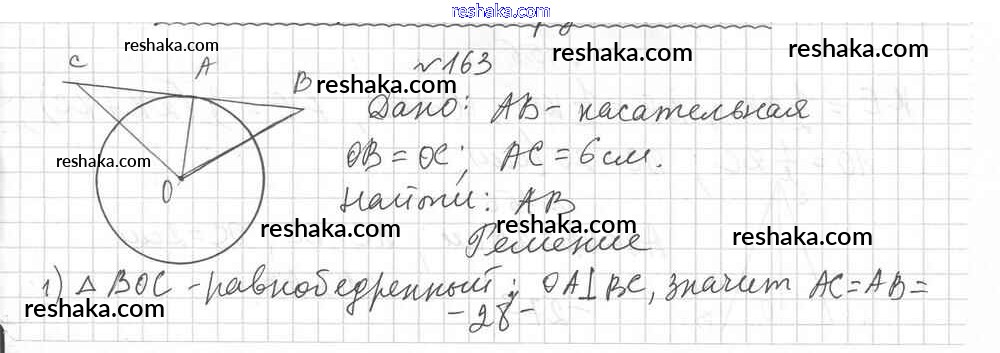 reshaka.com
№163
Дано: AB - касательная
OB = OC; AC = 6 см.
Найти: AB
Решение
1) △ BOC - равнобедренный; OA⊥BC, значит AC=AB=
-28-
C A B O
reshaka.com
reshaka.com
reshaka.com
reshaka.com
reshaka.com
reshaka.com
reshaka.com
reshaka.com
reshaka.com